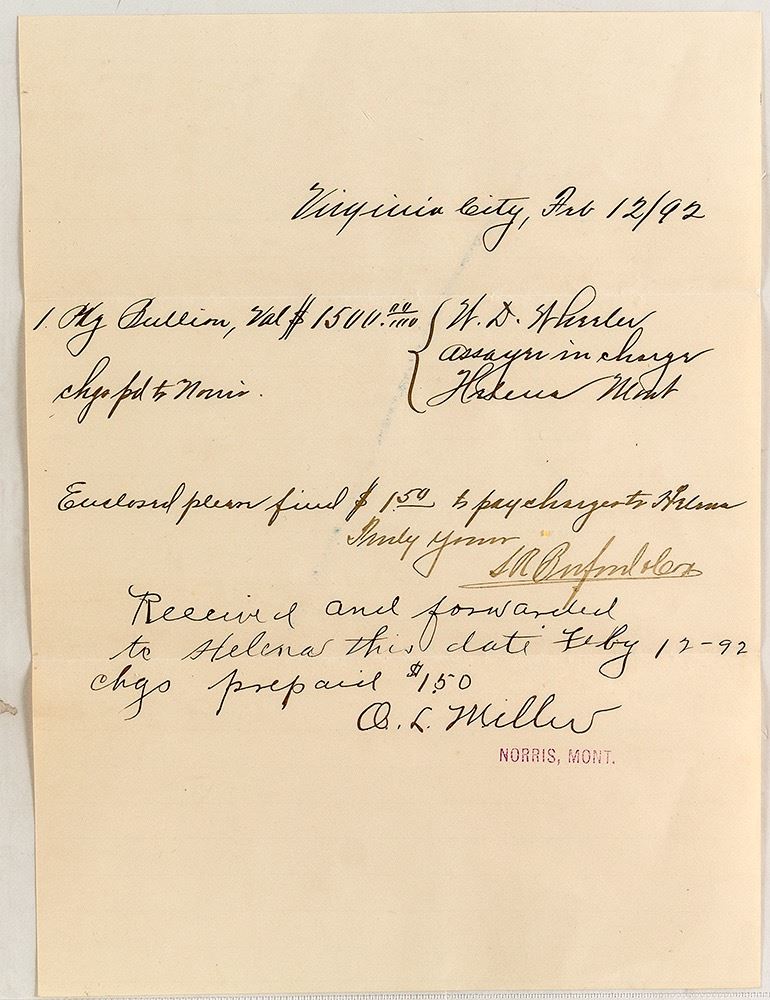 Virginia City, Feb 12/92
1 Pkg Bullion, Val $1500.00/100 { W. D. Wheeler
assayer in charge
chgs pd to Norris. Helena Mont
Enclosed please find $1.50 to pay charges to Helena
Truly yours
S R Buford & Co
Received and forwarded
to Helena this date Feby 12-92
chgs prepaid $1.50
O. L. Miller
NORRIS, MONT.